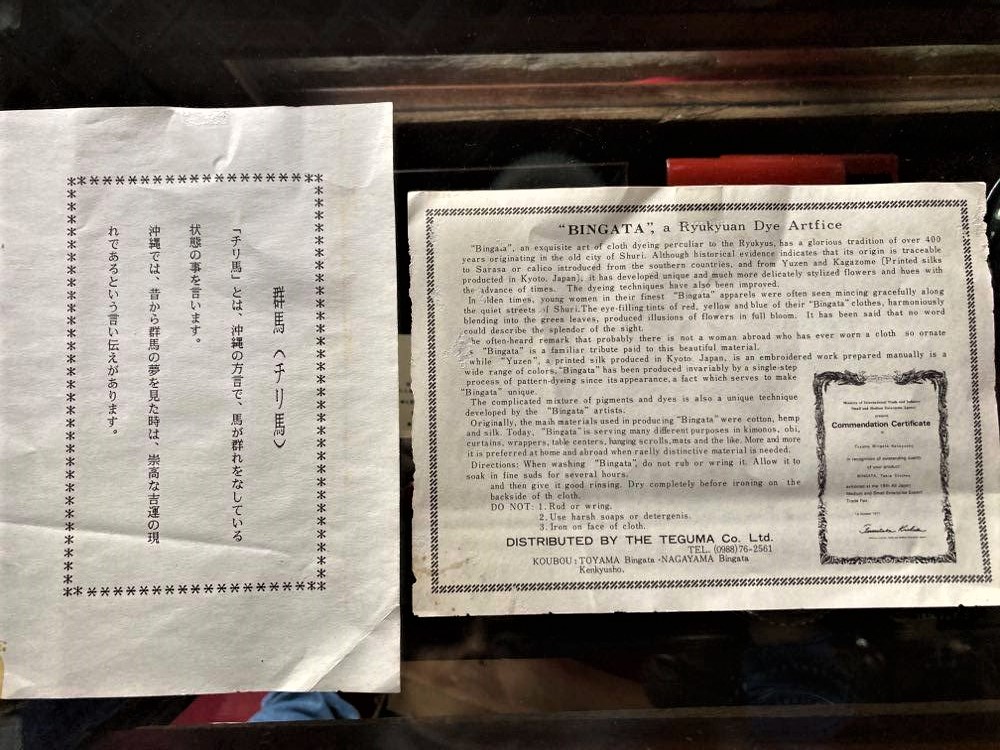 群馬(チリ馬)
「チリ馬」とは、沖縄の方言で、馬が群れをなしている
状態の事を言います。
沖縄では、昔から群馬の夢を見た時は、崇高な吉運の現
れであるという言い伝えがあります。
"BINGATA", a Ryukyuan Dye Artfice
"Bingata", an exquisite art of cloth dyeing perculiar to the Ryukyus, has a glorious tradition of over 400
years originating in the old city of Shuri. Although historical evidence indicates that its origin is traceable
to Sarasa or calico introduced from the southern countries, and from Yuzen and Kagazome [Printed silks
producted in Kyoto, Japan], it has developed unique and much more delicately stylized flowers and hues with
the advance of times. The dyeing techniques have also been improved.
In olden times, young women in their finest "Bingata" apparels were often seen mincing gracefully along
the quiet streets of Shuri. The eye-filling tints of red, yellow and blue of their "Bingata" clothes, harmoniously
blending into the green leaves, produced illusions of flowers in full bloom. It has been said that no word
could describe the splendor of the sight.
he often-heard remark that probably there is not a woman abroad who has ever worn a cloth so ornate
s "Bingata" is a familiar tribute paid to this beautiful material.
while "Yuzen", a printed silk produced in Kyoto Japan, is an embroidered work prepared manually is a
wide range of colors, "Bingata" has been produced invariably by a single-step
process of pattern-dyeing since its appearance, a fact which serves to make
"Bingata" unique.
The complicated mixture of pigments and dyes is also a unique technique
developed by the "Bingata" artists.
Originally, the main materials used in producing "Bingata" were cotton, hemp
and silk. Today, "Bingata" is serving many different purposes in kimonos, obi,
curtains, wrappers, table centers, hanging scrolls, mats and the like. More and more
it is preferred at home and abroad when raelly distinctive material is needed.
Directions: When washing "Bingata", do not rub or wring it. Allow it to
soak in fine suds for several hours.
and then give it good rinsing. Dry completely before ironing on the
backside of th cloth.
DO NOT: 1. Rud or wring.
2. Use harsh soaps or detergenis.
3. Iron on face of cloth.
DISTRIBUTED BY THE TEGUMA Co. Ltd.
TEL. (0988)76-2561
KOUBOU: TOYAMA Bingata -NAGAYAMA Bingata
Kenkyusho.
Ministry of International Trade and Industry
Small and Medium Enterprise Agency
present
Commendation Certificate
to
Toyama Bingata Kenkyusho
in recognition of outstanding quality
of your product
BINGATA, Table Clothes
exhibited at the 18th All Japan
Medium and Small Enterprise Export
Trade Fair